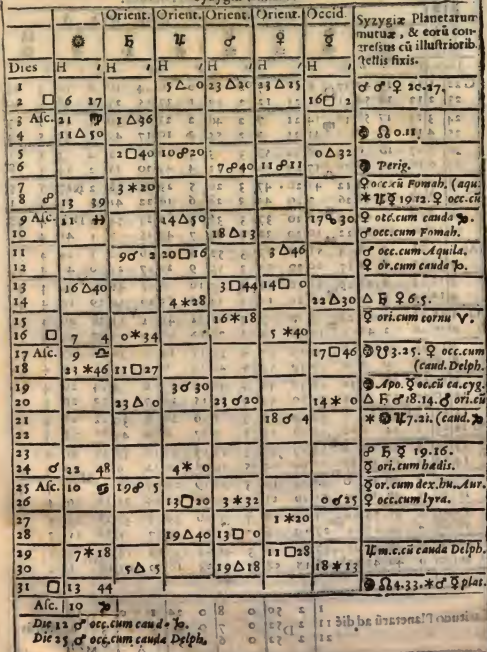 Orient. Orient. Orient. Orient. Occid.
☼ ♄ ♃ ♂ ♀ ☿ Syzygiæ Planetarum
mutuæ, & eorū con-
gresus cū illustriorib.
stellis fixis.
Dies H ′ H ′ H ′ H ′ H ′ H ′
1 5 △ 0 23 △ 20 23 △ 25 ☌ ♂ ♀ 20.27.
2 □ 6 17 16 □ 2
3 Asc. 21 ♍ 1 △ 36
4 11 △ 50 ☊ 0.11
5 2 □ 40 10 ☍ 20 0 △ 32
6 7 ☍ 40 11 ☍ 11 Perig.
7 3 ✶ 20 ♀ occ.cū Fomah. (aqu.
8 ☍ 13 39 ✶ ♃ ☿ 19.12. ♀ occ.cū
9 Asc. 11 ♓ 14 △ 50 17 ☍ 30 ♀ occ.cum cauda ♑.
10 18 △ 13 ♂ occ.cum Fomah.
11 9 ☌ 2 20 □ 16 3 △ 46 ♂ occ.cum Aquila.
12 ♀ or.cum cauda ♑.
13 16 △ 40 3 □ 44 14 □ 0
14 4 ✶ 28 22 △ 30 △ ♄ ♀ 6.5.
15 16 ✶ 18 ☿ ori.cum cornu ♈.
16 □ 7 4 0 ✶ 34 5 ✶ 40
17 Asc. 9 ♎ 17 □ 46 ☋ 3.25. ♀ occ.cum
18 23 ✶ 46 11 □ 27 (caud. Delph.
19 3 ☌ 30 Apo. ☿ oc.cū ca.cyg.
20 23 △ 0 23 ☌ 20 14 ✶ 0 △ ♄ ♂ 18.14. ♂ ori.cū
21 18 ☌ 4 ✶ ☼ ♃ 7.21. (caud. ♑
22
23 ☍ ♄ ☿ 19.16.
24 ☌ 22 48 4 ✶ 0 ☿ ori.cum hædis.
25 Asc. 10 ♋ 19 ☍ 5 ☿ or.cum dex.hu.Aur.
26 13 □ 20 3 ✶ 32 0 ☌ 25 ♀ occ.cum lyra.
27 1 ✶ 20
28 19 △ 40 13 □ 0
29 7 ✶ 18 11 □ 28 ♃ m.c.cū cauda Delph.
30 5 △ 5 19 △ 18 18 ✶ 13
31 □ 13 44 ☊ 4.33. ✶ ♂ ☿ plat.
Asc. 10 ♑
Die 12 ♂ occ.cum cauda ♑.
Die 25 ♂ occ.cum cauda Delph.